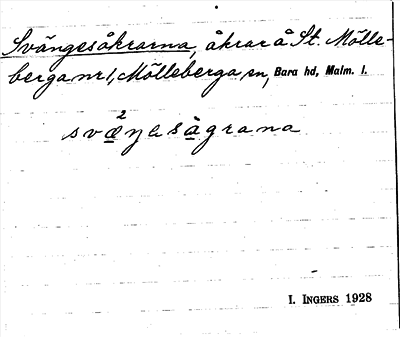 Svängesåkrarna, åkrar å St. Mölle-
berga nr 1, Mölleberga sn, Bara hd, Malm. l.
2
svæŋesågrana
I. INGERS 1928